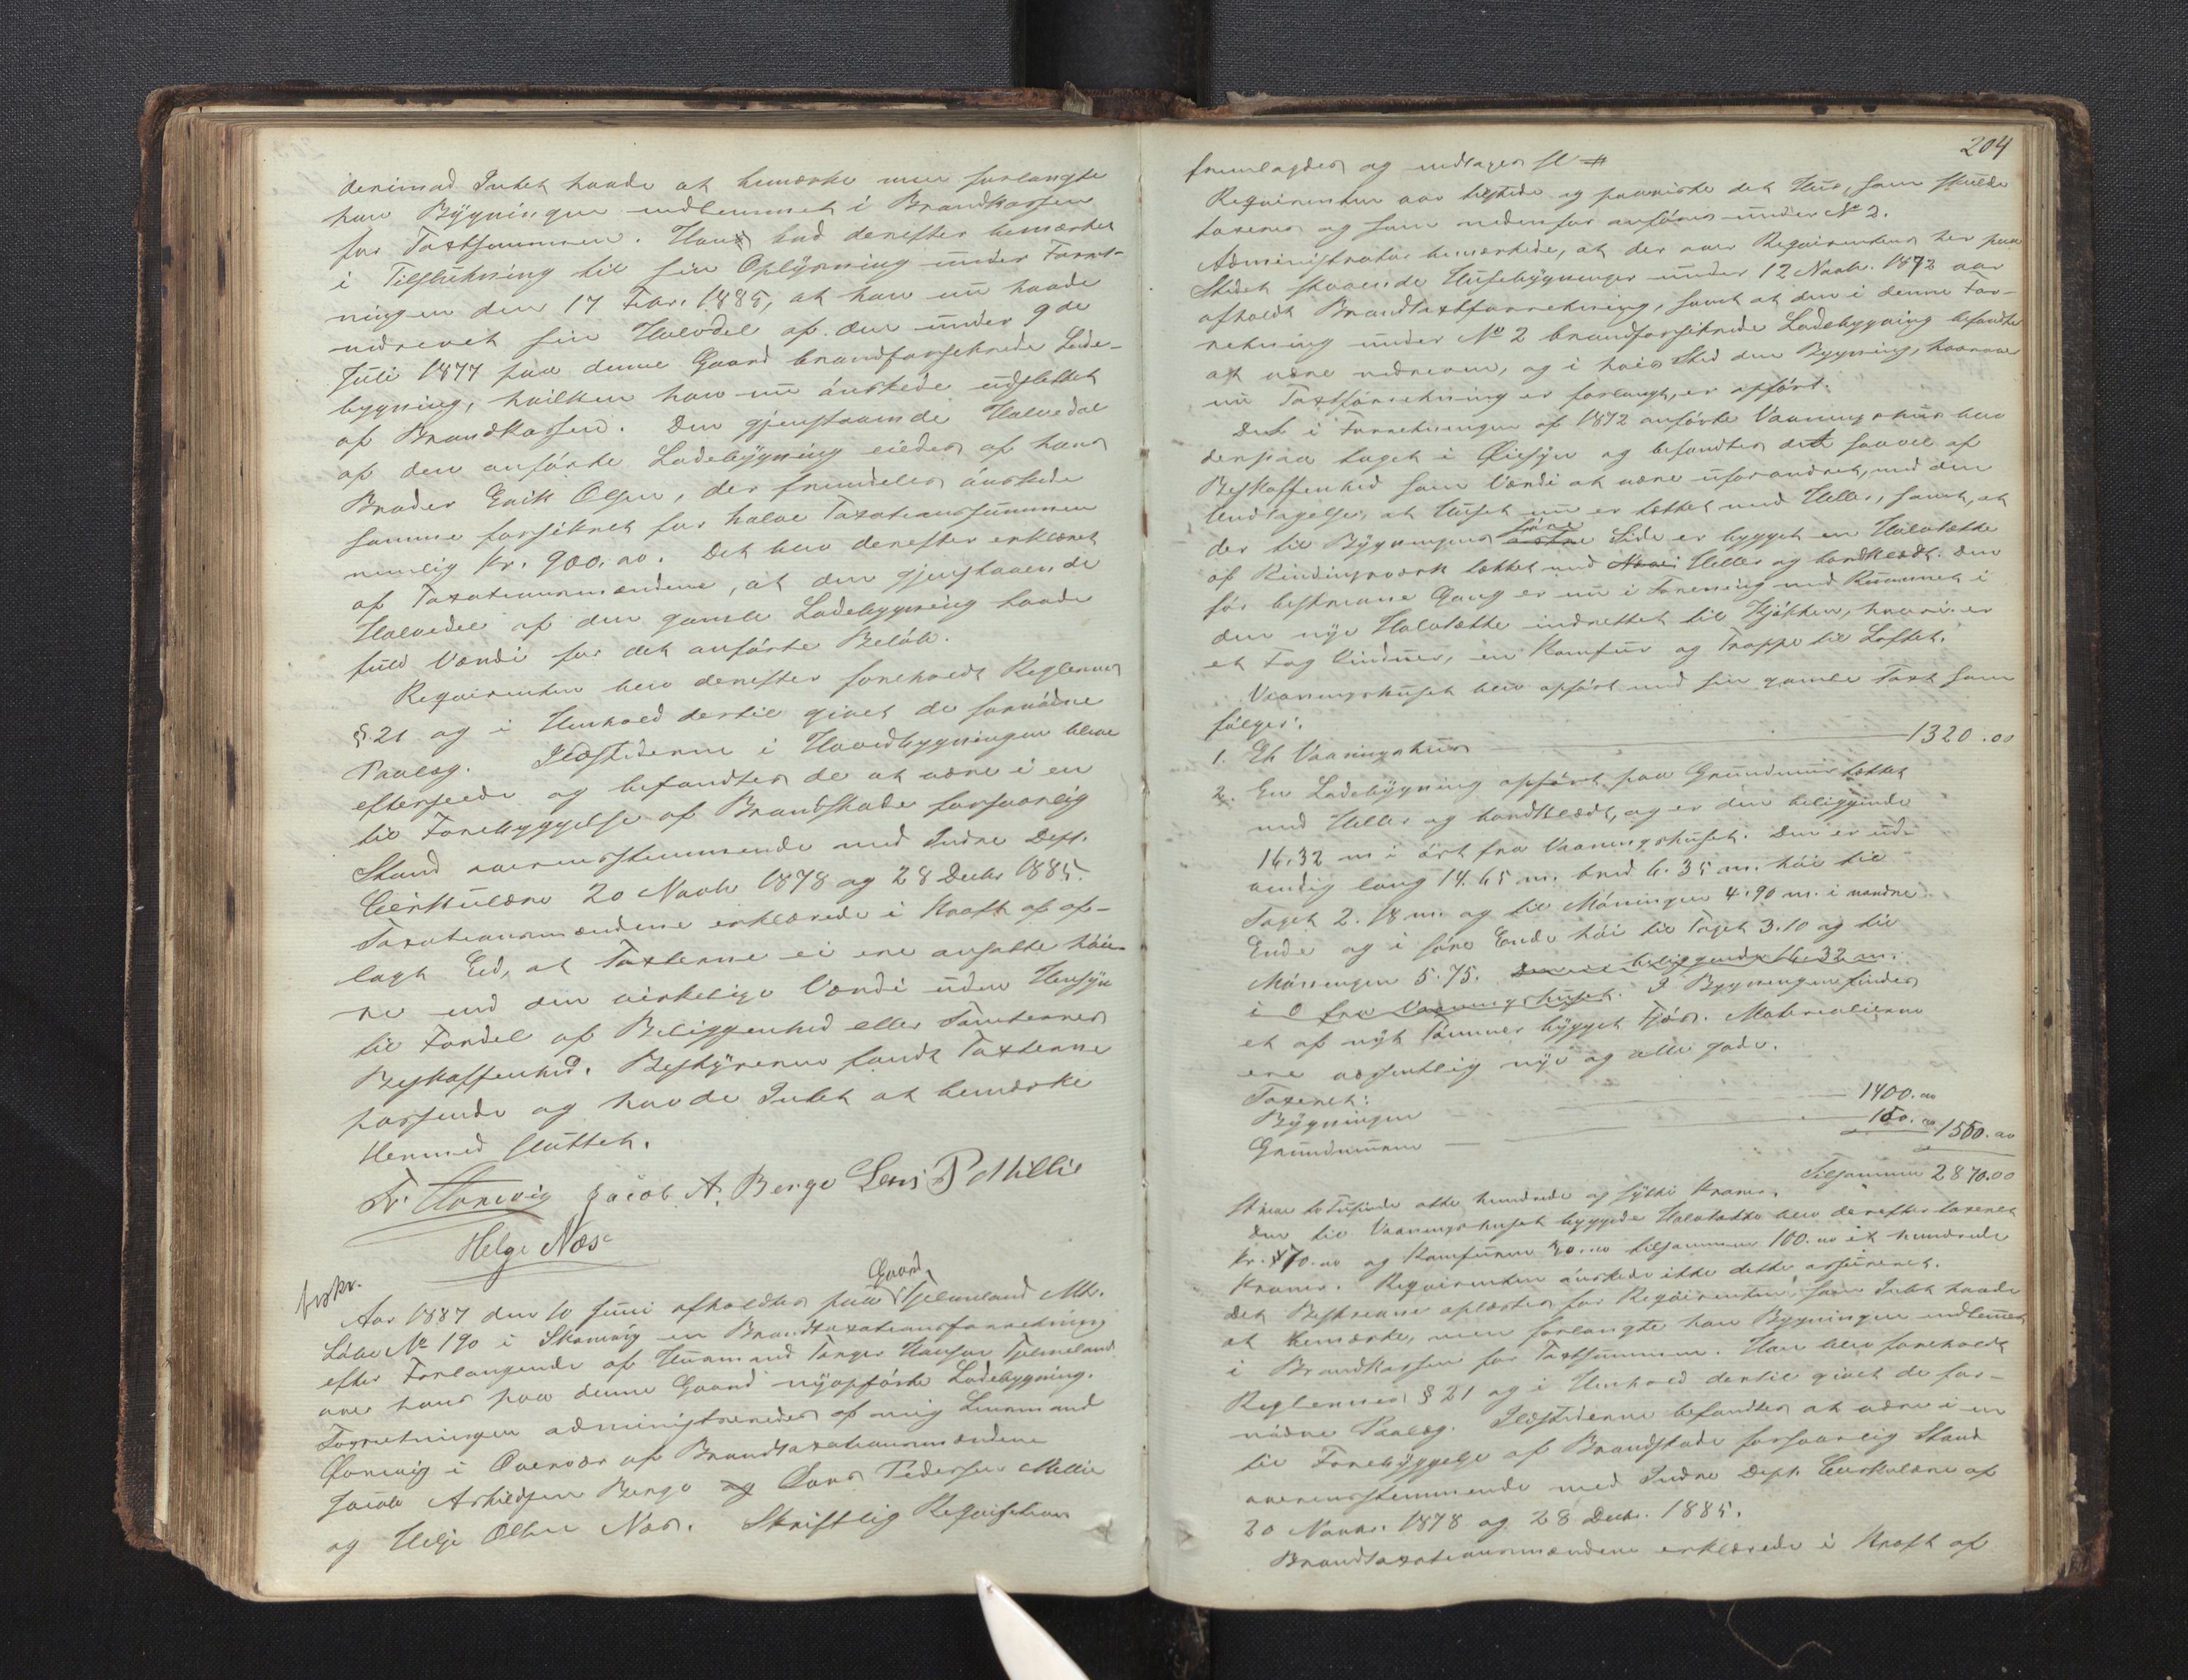 derimod Intet havde at bemærke men forlangte
han Bygningen indlemmet i Brandkassen
for Taxtsummen. Han bad derefter bemærket
i Tilslutning til sin Oplysning under Forret-
ningen den 17 Febr. 1885, at han nu havde
nedrevet sin Halvdel af den under 9de
Juli 1877 paa denne Gaard brandforsikrede Lade-
bygning, hvilken han nu ønskede udslettet
af Brandkassen. Den gjenstaaende Halvdel
af den anførte Ladebygning eiedes af hans
Broder Erik Olsen, der fremdeles ønskede
samme forsikret for halve Taxationssummen
nemlig Kr. 900.00. Det blev derefter erklæret
af Taxationsmændene, at den gjenstaaende
Halvedel af den gamle Ladebygning havde
fuld Værdi for det anførte Beløb.
Reqvirenten blev derefter foreholdt Reglernes
§ 21 og i Henhold dertil givet de fornødne
Paalæg. Ildstederne i Hovedbygningen bleve
efterseede og befandtes de at være i en
til Forebyggelse af Brandskade forsvarlig
Stand overensstemmende med Indre Dept.
Cirkulære 20 Novb 1878 og 28 Decbr 1885.
Taxationsmændene erklærede i Kraft af af-
lagt Eed, at Taxterne ei ere ansatte høie-
re end den virkelige Værdi uden Hensyn
til Fordel af Beliggenhed eller Tomternes
Beskaffenhed. Bestyreren fandt Taxterne
passende og havde Intet at bemærke
Hermed sluttet.
Jacob A. Berge Lars P Millie
Helge Næse
beskr.
Gaard
Aar 1887 den 10 Juni afholdtes paa Tjelmeland Mtr.
Løbe № 190 i en Brandtaxationsforretning
efter Forlangende af Huusmand Torger Hansen Tjelmeland
over hans paa denne Gaard nyopførte Ladebygning.
Forretningen administreredes af mig Lensmand
i Overvær af Brandtaxationsmændene
Jacob Askildsen Berge og Lars Pedersen Millie
og Helge Olsen Næs. Skriftlig Reqvisition
204
fremlagdes og indtages sl
Reqvirenten var tilstede og paaviste det Huus, som skulde
taxeres og som nedenfor anføres under № 2.
Administrator bemærkede, at der over Reqvirentens her paa
Stedet staaende Husebygninger under 12 Novbr. 1872 var
afholdt Brandtaxtforretning, samt at den i denne For-
retning under № 2 brandforsikrede Ladebygning befandtes
at være nedreven, og i hvis Sted den Bygning, hvorover
nu Taxtforretning er forlangt, er opført.
Det i Forretningen af 1872 anførte Vaaningshuus blev
derpaa taget i Øiesyn og befandtes det saavel af
Beskaffenhed som Værdi at være uforandret, med den
Undtagelse, at Huset nu er tættet med Heller, samt, at
der til Bygningens søre Side er bygget en Halvtætte
af Bindingsværk tækket med Heller og bordklædt. Den
før beskrevne Gang er nu i Forening med Rummet i
den nye Halvtætte indrettet til Kjøkken, hvori er
et Fag Vinduer, en Komfur og Trappe til Loftet.
Vaaningshuset blev opført med sin gamle Taxt som
følger:
1. Et Vaaningshuus 1320.00
2. En Ladebygning opført paa Grundmuur tækket
med Heller og bordklædt, og er den beliggende
16.32 m i øst fra Vaaningshuset. Den er ud-
vendig lang 14.65 m. bred 6.35 m. høi til
Taget 2.18 m. og til Møningen 4.90 m. i nordre
Ende og i søre Ende høi til Taget 3.10 og til
Møningen 5.75. Den er beliggende 16.32 m.
i O fra Vaaningshuset. I Bygningen findes
et af nyt Tømmer bygget Fjøs. Materialierne
ere væsentlig nye og alle gode.
Taxeret:
Bygningen 1400.00
Grundmuren 150.00 1550.00
Tilsammen 2870.00
skriver totusinde otte hundrede og sytti Kroner.
Den til Vaaningshuset byggede Halvtætte blev derefter taxeret
Kr. 70.00 og Komfuren 30.00 tilsammen 100.00 et hundrede
Kroner. Reqvirenten ønskede ikke dette assureret.
Det Beskrevne oplæstes for Reqvirenten, som Intet havde
at bemærke, men forlangte han Bygningen indlemmet
i Brandkassen for Taxtsummen. Han blev foreholdt
Reglernes § 21 og i Henhold dertil givet de for-
nødne Paalæg. Ildstederne befandtes at være i en
til Forebyggelse af Brandskade forsvarlig Stand
overensstemmende med Indre Dept. Cirkulære af
20 Novbr. 1878 og 28 Decbr. 1885.
Brandtaxationsmændene erklærede i Kraft af